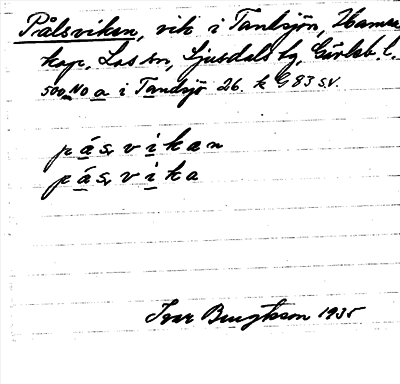 Pålsviken, vik i Tandsjön, Hamra
kap. Los sn, Ljusdals tg, Gävleb. l.
500 m NO a i Tandsjö 26. k G 83 s.v.
pásvikan
pásvika
Ivar Bengtsson 1935